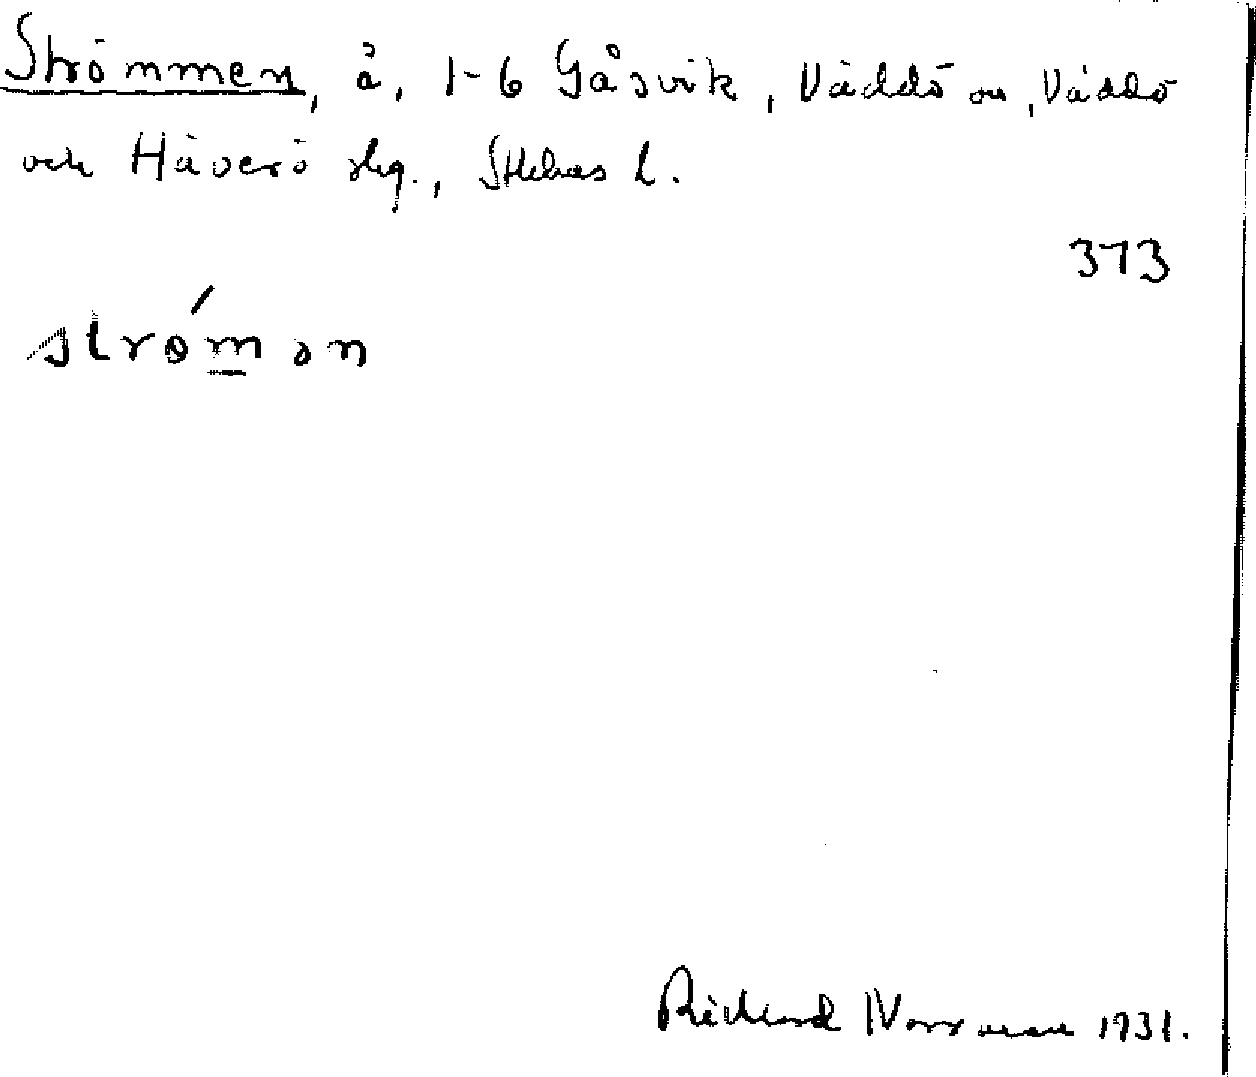 Strömmen, å, 1-6 Gåsvik, Väddö sn, Väddö
och Häverö skg., Sthlms l.
373
strø´mən
Richard Norrman 1931.